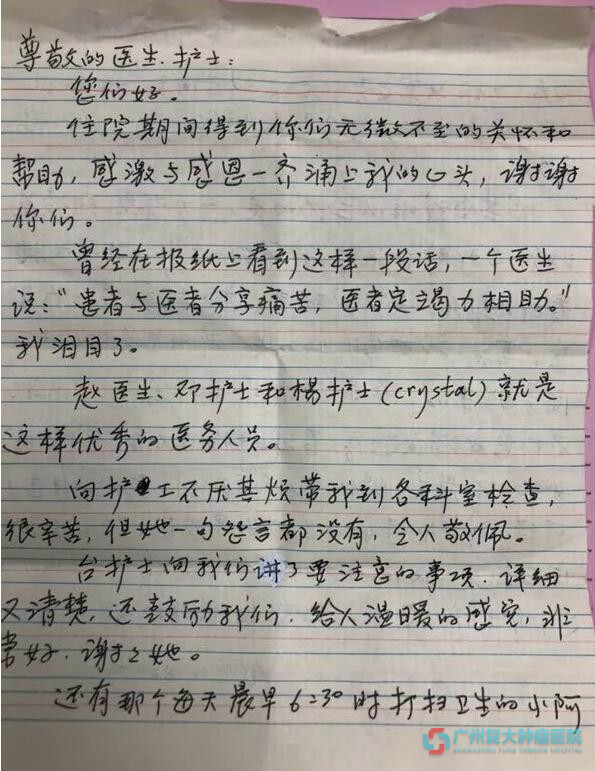 尊敬的医生、护士：
您们好。
住院期间得到你们无微不至的关怀和
帮助，感激与感恩一齐涌上我的心头，谢谢
你们。
曾经在报纸上看到这样一段话，一个医生
说：“患者与医者分享痛苦，医者定竭力相助。”
我泪目了。
赵医生、邓护士和杨护士(crystal)就是
这样优秀的医务人员。
向护工不厌其烦带我到各科室检查，
很辛苦，但她一句怨言都没有，令人敬佩。
台护士向我们讲了要注意的事项．详细
又清楚，还鼓励我们．给人温暖的感觉，非
常好．谢谢她。
还有那个每天晨早6:30时打扫卫生的小阿
广州复大肿瘤医院
GUANGZHOU FUDA TUMOUR HOSPITAL